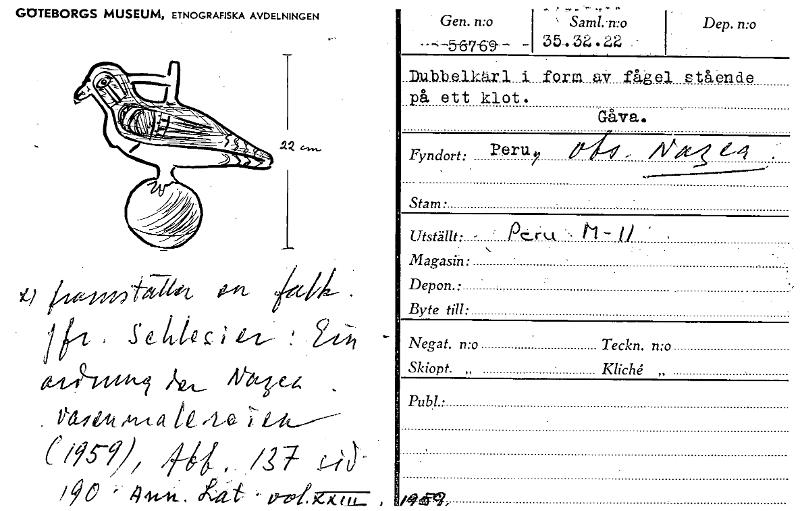 GÖTEBORGS MUSEUM, ETNOGRAFISKA AVDELNINGEN
22 cm
x) framställer en falk.
Jfr. Schlesier: Ein-
ordnung der Nazca
vasenmalereien
(1959), Abb. 137 sid
190. Ann. Lat. vol. XXIII, 1959.
Gen. n:o
56769
Saml. n:o
35.32.22
Dep. n:o
Dubbelkärl i form av fågel stående
på ett klot.
Gåva.
Fyndort: Peru, obs. Nazca.
Stam:
Utställt: Peru M-11
Magasin:
Depon.:
Byte till:
Negat. n:o Teckn. n:o
Skiopt. „ Kliché „
Publ.: